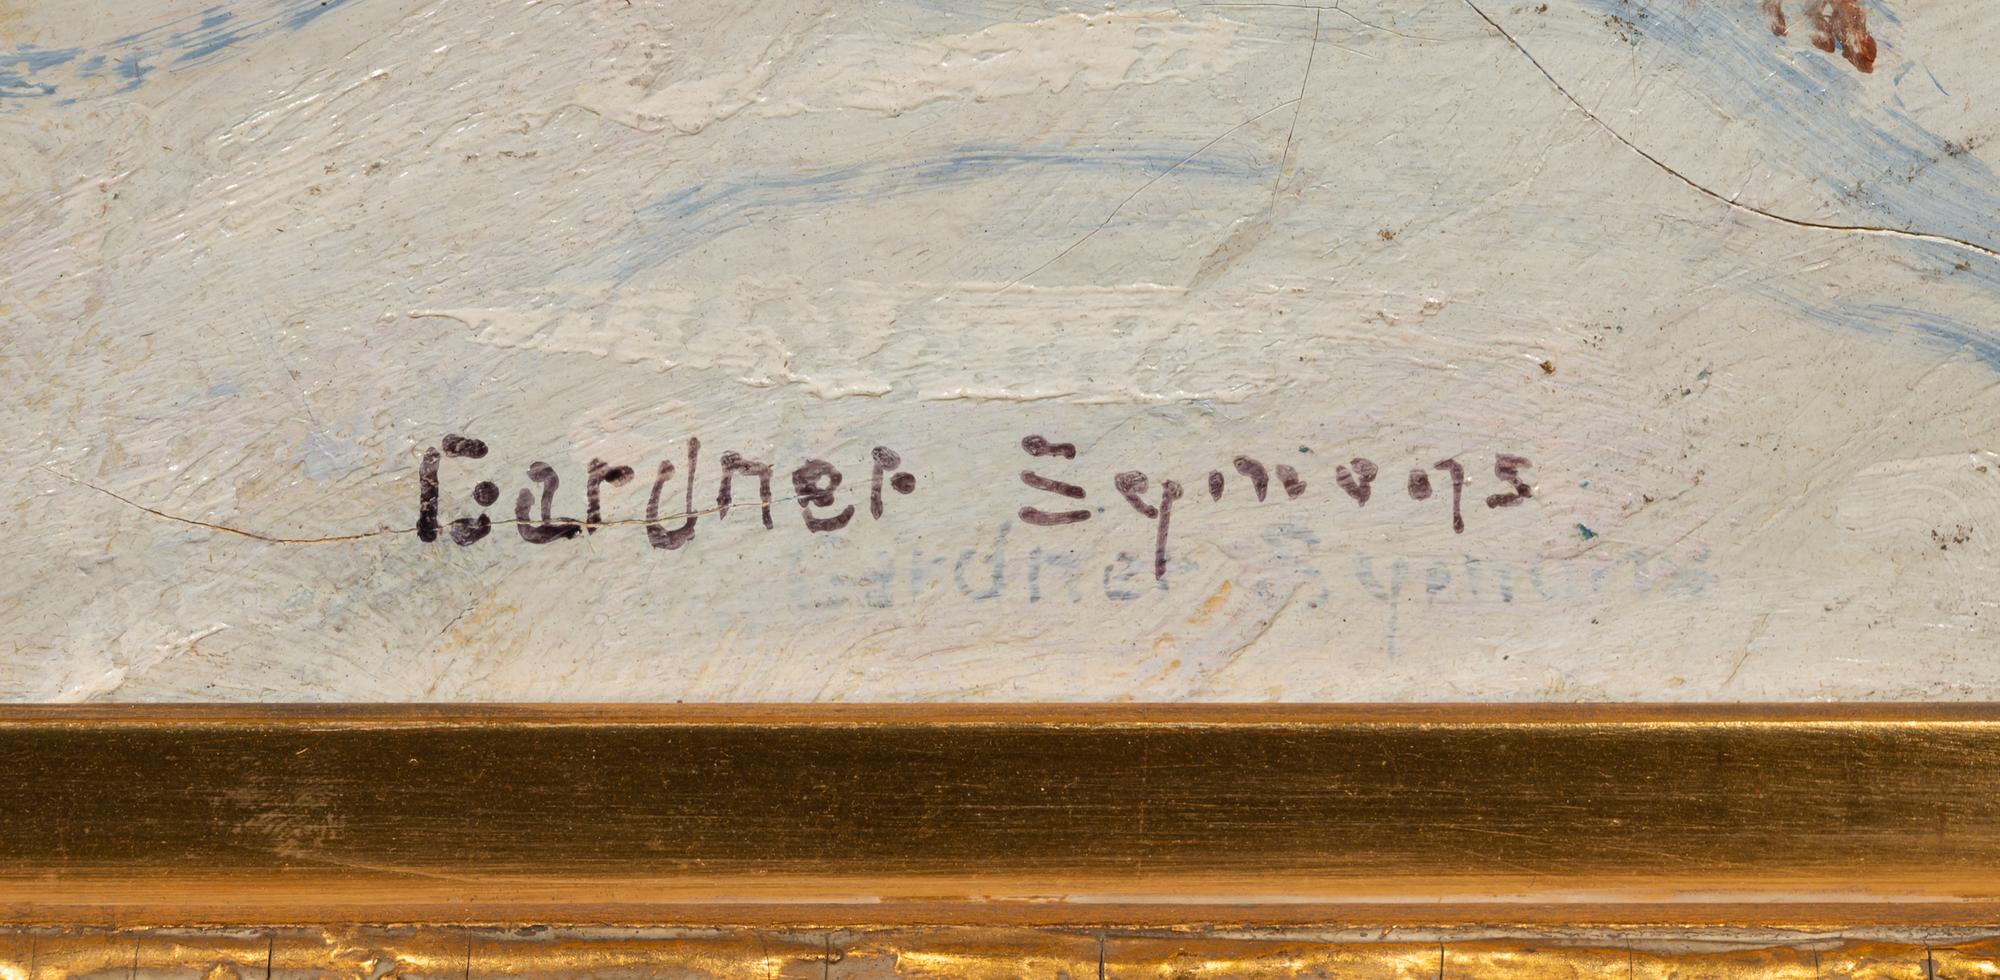 Gardner Symons
Gardner Symons